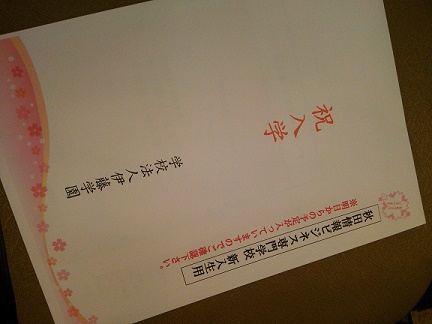 秋田情報ビジネス専門学校 新入生用
※明日からの予定が入っていますのでご確認下さい。
祝 入学
学校法人伊藤学園